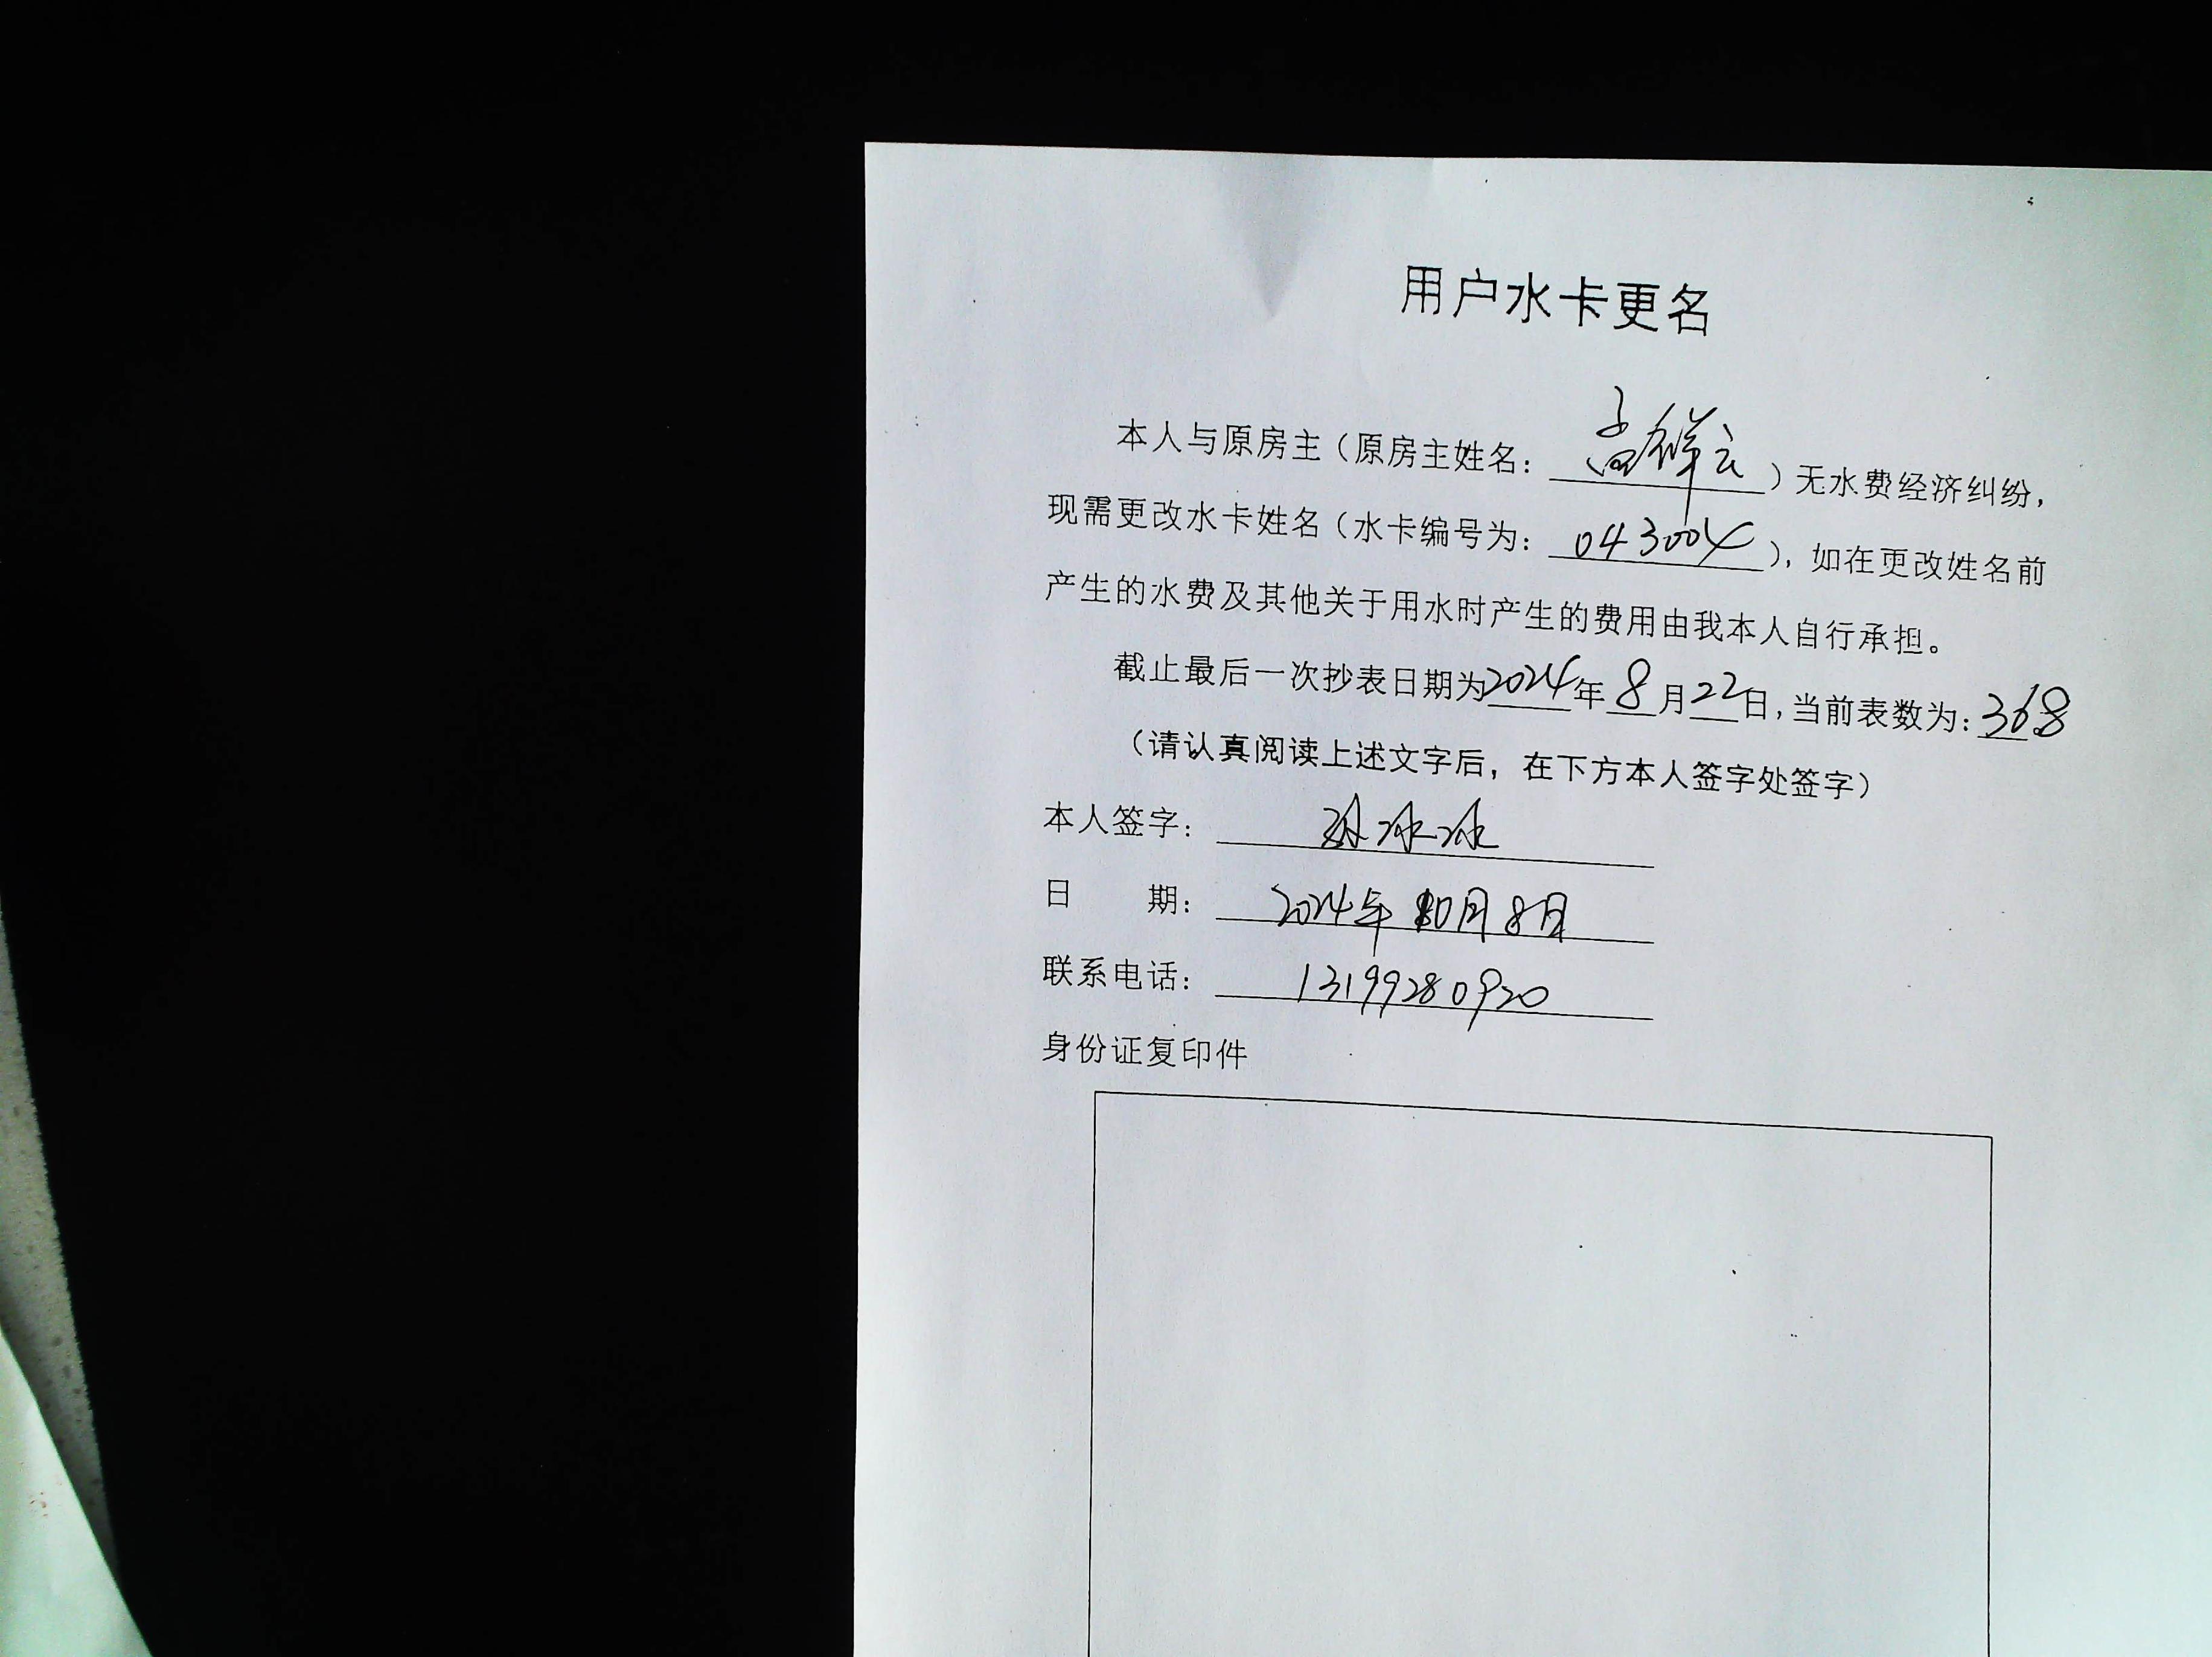 用户水卡更名
本人与原房主（原房主姓名：高祥云）无水费经济纠纷，
现需更改水卡姓名（水卡编号为：043004），如在更改姓名前
产生的水费及其他关于用水时产生的费用由我本人自行承担。
截止最后一次抄表日期为2024年8月22日，当前表数为：368
（请认真阅读上述文字后，在下方本人签字处签字）
本人签字：孙冰冰
日 期：2024年10月8日
联系电话：13199280920
身份证复印件